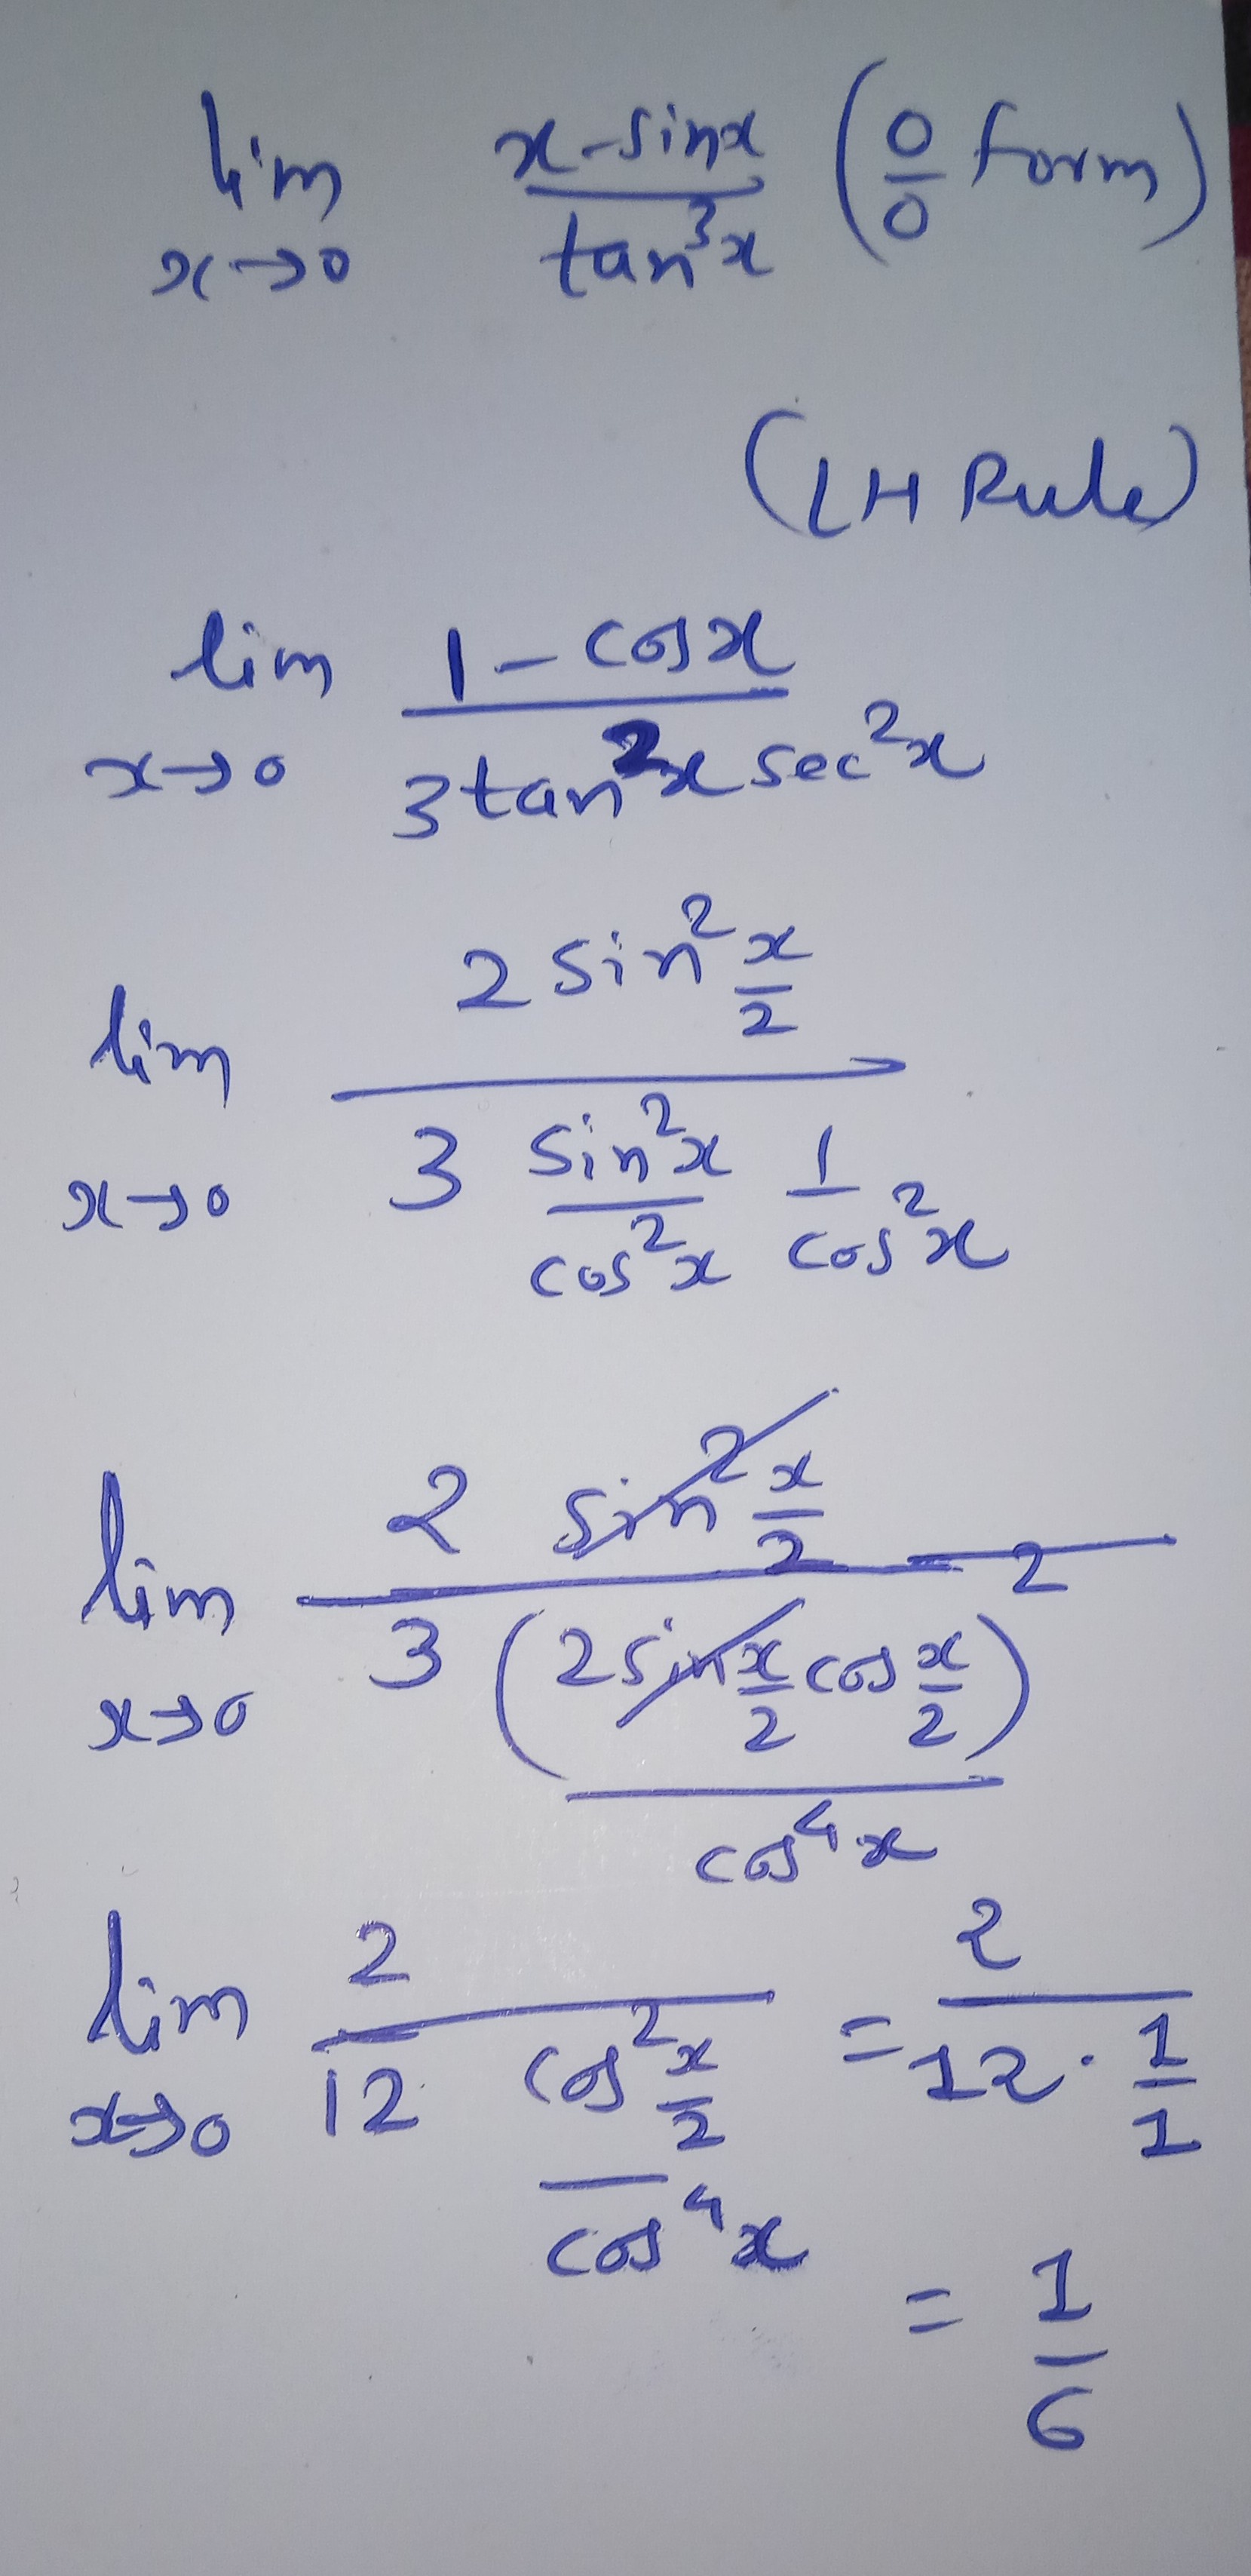 lim x→0 (x - sinx)/(tan³x) (0/0 form)
(LH Rule)
lim x→0 (1 - cosx)/(3tan²x sec²x)
lim x→0 (2 sin² x/2)/(3 (sin²x/cos²x) (1/cos²x))
lim x→0 (2 sin² x/2)/(3 (2 sin x/2 cos x/2)²/cos⁴x)
lim x→0 2/(12 (cos² x/2)/(cos⁴x)) = 2/(12 · 1/1)
= 1/6